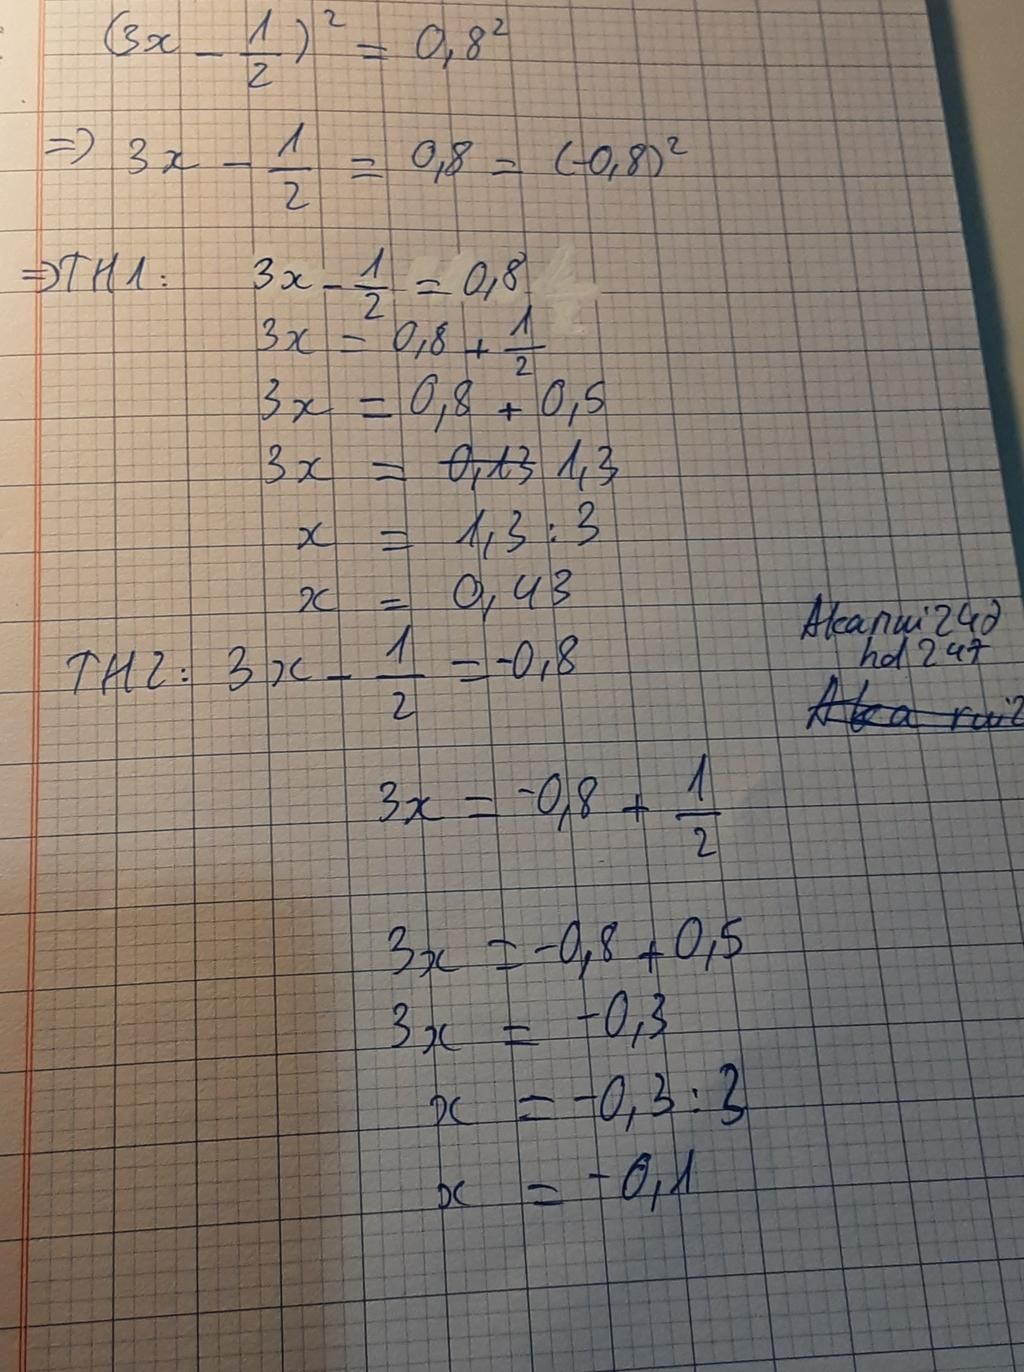 (3x - 1/2)² = 0,8²
=> 3x - 1/2 = 0,8 = (-0,8)²
=> TH1: 3x - 1/2 = 0,8
3x = 0,8 + 1/2
3x = 0,8 + 0,5
3x = 0,13 1,3
x = 1,3 : 3
x = 0,43
TH2: 3x - 1/2 = -0,8
3x = -0,8 + 1/2
3x = -0,8 + 0,5
3x = -0,3
x = -0,3 : 3
x = -0,1
hd 247